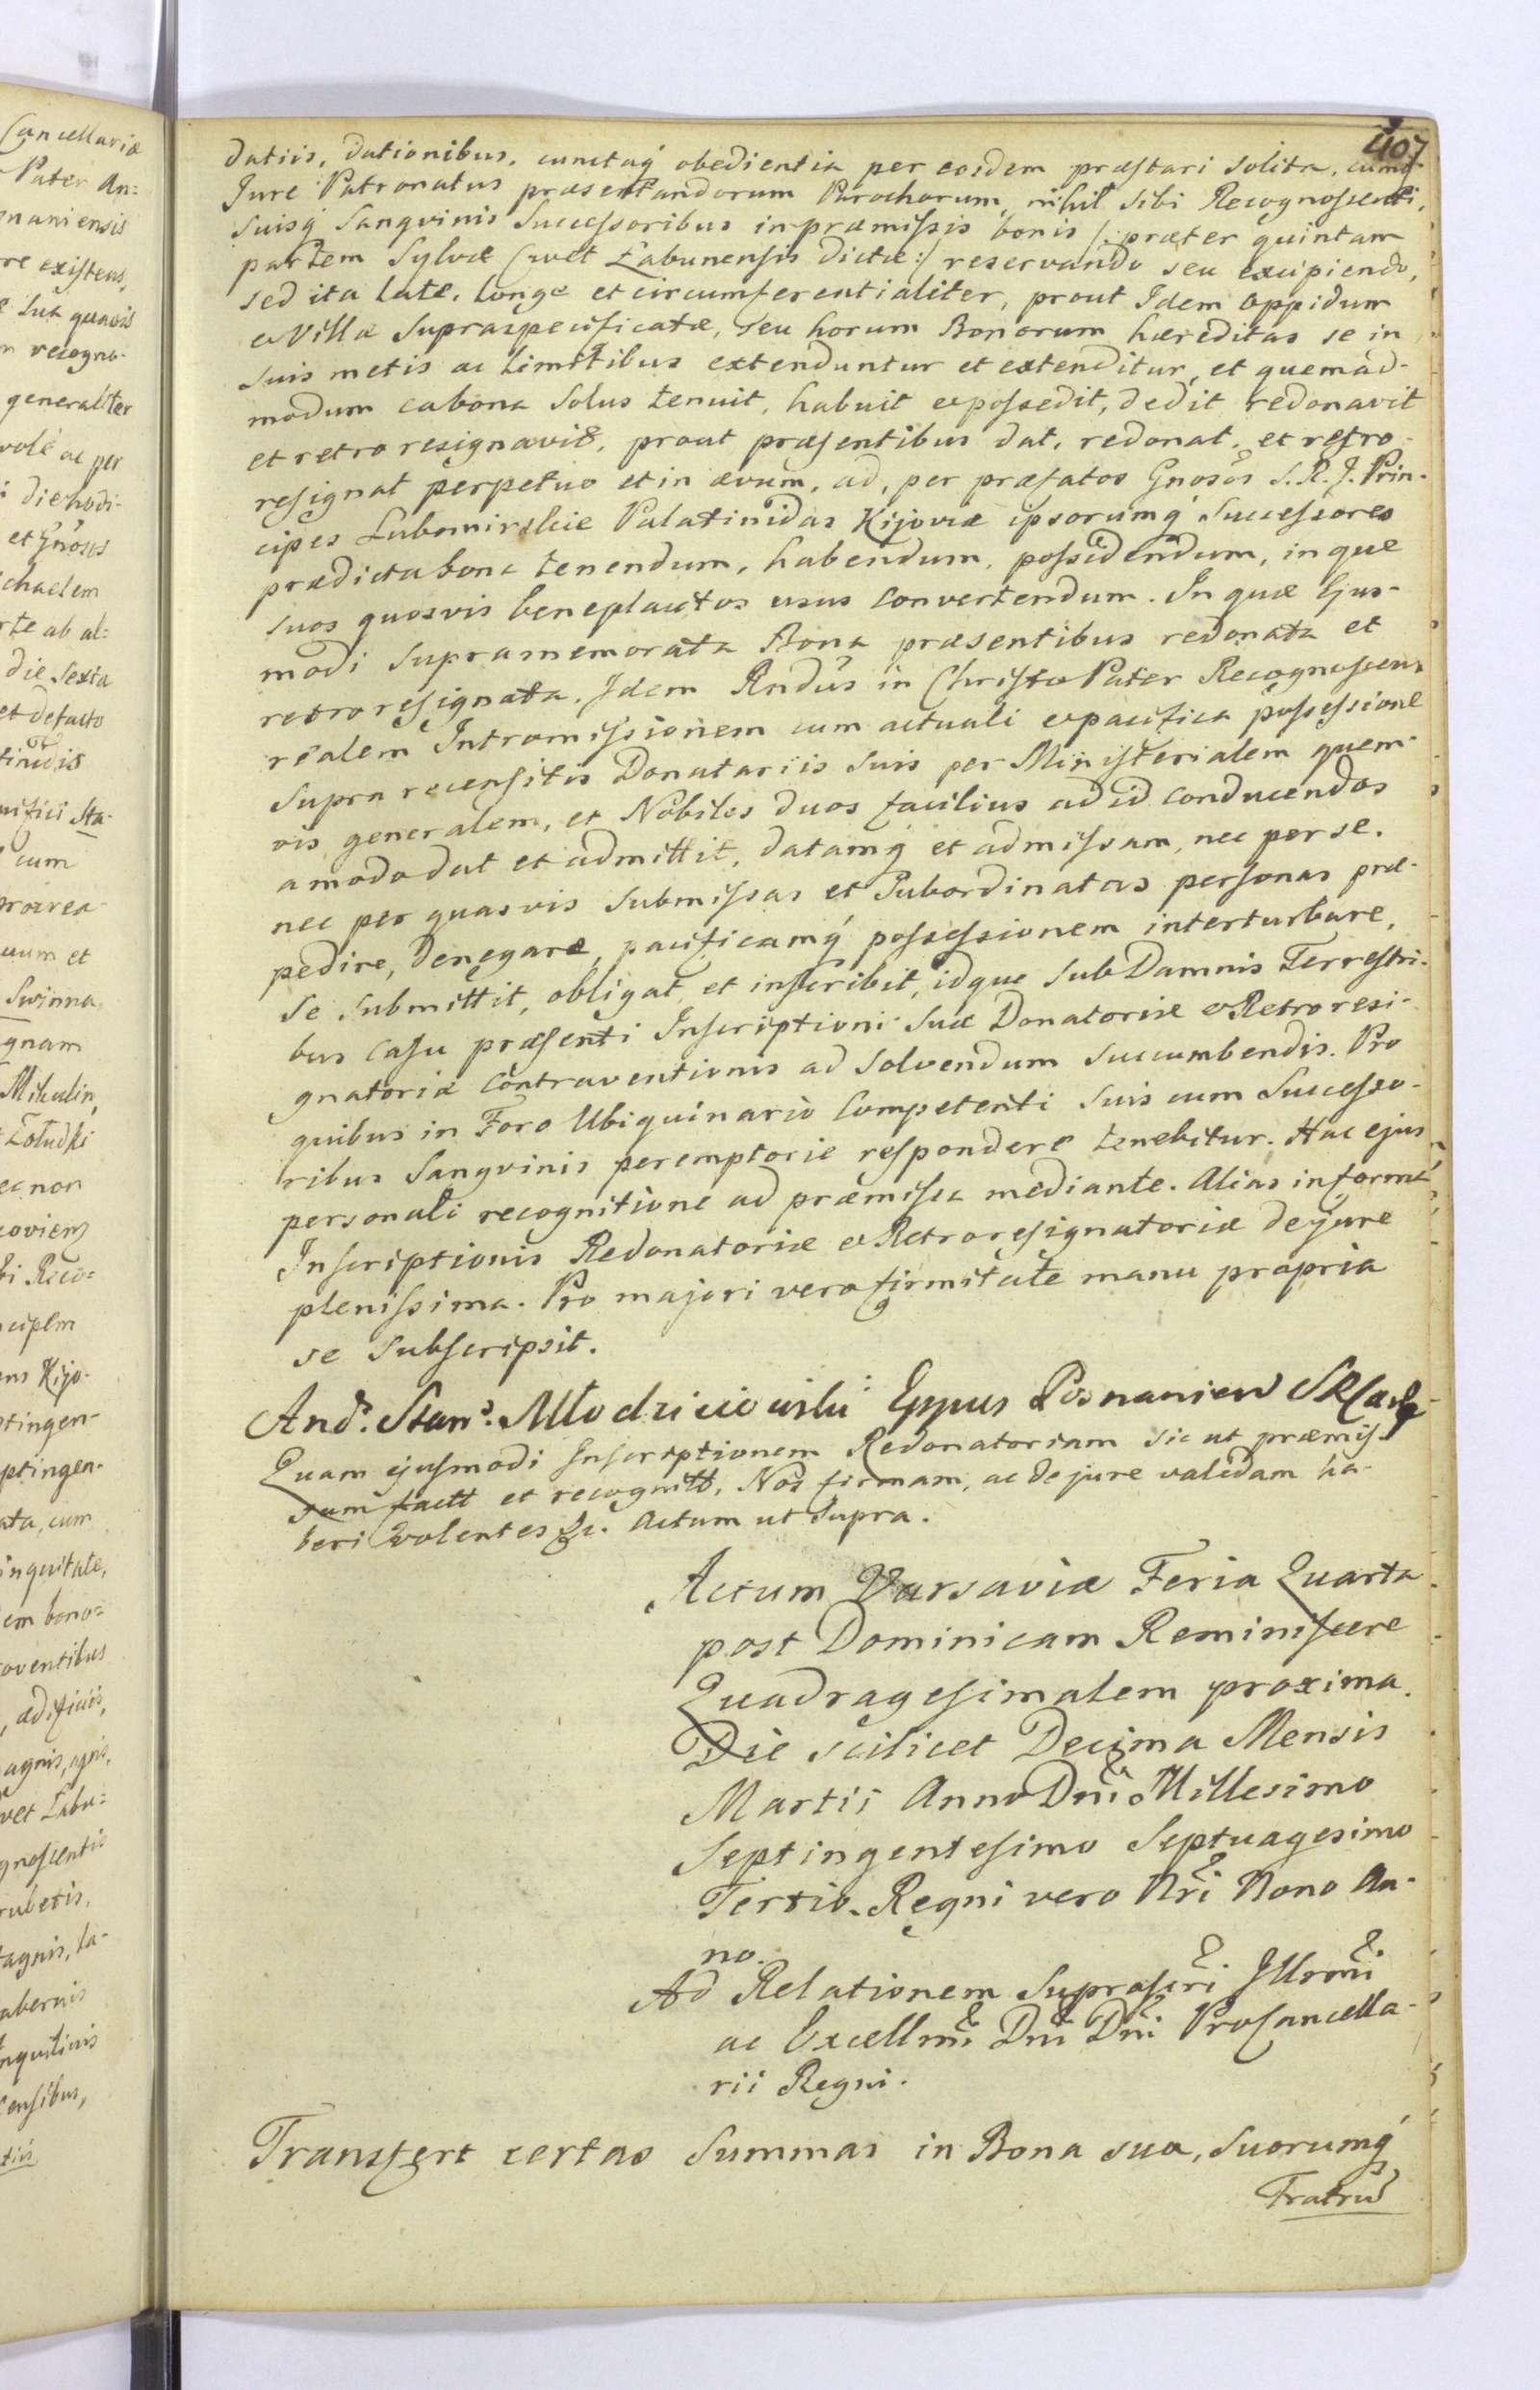 Cancellariæ
Pater An=
naniensis
re existens,
sua quavis
recogno-
generaliter
ac per
die hodi-
et Gnosos
chaelem
rte ab al=
die Sexta
et defacto
tinudis
nifici Sta-
cum
proavea-
uum et
Swinna
gnam
Mikulin,
Zołudki
ec non
coviens
bi Reco=
cipem
ens Kijo-
tingen-
ptingen-
ata, cum
inquitate,
em bono=
oventibus
ædificiis,
agnis, agris,
wet Łabu=
gnoscentis
rubetis,
tagnis, la-
abernis
nquilinis
censibus,
tiis
407
datiis, dationibus, cunctaq́ obedientia per eosdem præstari solita, cumq́
Jure Patronatus præsentandorum Parochorum, nihil sibi Recognoscenti,
suisq́ Sangvinis Successoribus in præmissis bonis /: præter quintam
partem Sylvæ Cwet Łabunensis dictæ :/ reservando seu excipiendo,
sed ita late, longe et circumferentialiter, prout Idem Oppidum
et Villæ Supraspecificatæ, seu horum Bonorum hæreditas se in
suis metis ac Limitibus extenduntur et extenditur, et quemad-
modum ea bona solus tenuit, habuit et possedit, dedit redonavit
et retroresignavit, prout præsentibus dat, redonat, et retro-
resignat perpetuo et in ævum, ad, per præfatos Gnosos S. R. J. Prin-
cipes Lubomirskie Palatinidas Kijoviæ ipsorumq́ Successores
prædicta bona tenendum, habendum, possidendum, in que
suos quosvis beneplacitos usus convertendum. In quæ Ejus-
modi Supramemorata Bona præsentibus redonata et
retroresignata. Idem Rndūs in Christo Pater Recognoscens
realem Intromissionem cum actuali et pacifica possessione
supra recensitis Donatariis suis per Ministerialem quem-
vis generalem, et Nobiles duos facilius ad id conducendos
amodo dat et admittit, datamq́ et admissam, nec per se.
nec per quasvis submissas et Subordinatas personas præ-
pedire, denegare, pacificamq́ possessionem interturbare,
se submittit, obligat, et inscribit, idque sub Damnis Terrestri-
bus casu præsenti Inscriptioni suæ Donatoriæ et Retroresi-
gnatoriæ contraventionis ad solvendum succumbendis. Pro
quibus in Foro Ubiquinario Competenti suis cum Successo-
ribus Sangvinis peremptorie respondere tenebitur. Hac ejus
personali recognitione ad præmissa mediante. Alias in forma
Inscriptionis Redonatoriæ et Retroresignatoriæ de jure
plenissima. Pro majori vero firmitate manu propria
se subscripsit.
And: Stan: Młodzieiowski Eppus Posnanien
Quam ejusmodi Inscriptionem Redonatoriam sic ut præmis-
sum factt et recognitt, Nos firmam, ac de jure validam ha-
beri volentes &c. Actum ut Supra.
Actum Varsaviæ Feria Quarta
post Dominicam Reminiscere
Quadragesimalem proxima.
Die scilicet Decima Mensis
Martii Anno Dni Millesimo
Septingentesimo Septuagesimo
Tertio. Regni vero Nri Nono An-
no.
Ad Relationem Suprascri Illrmi
ac Excellmi Dni Dni ProCancella-
rii Regni.
Transfert certas Summas in Bona sua, suorumq́
Fratrū